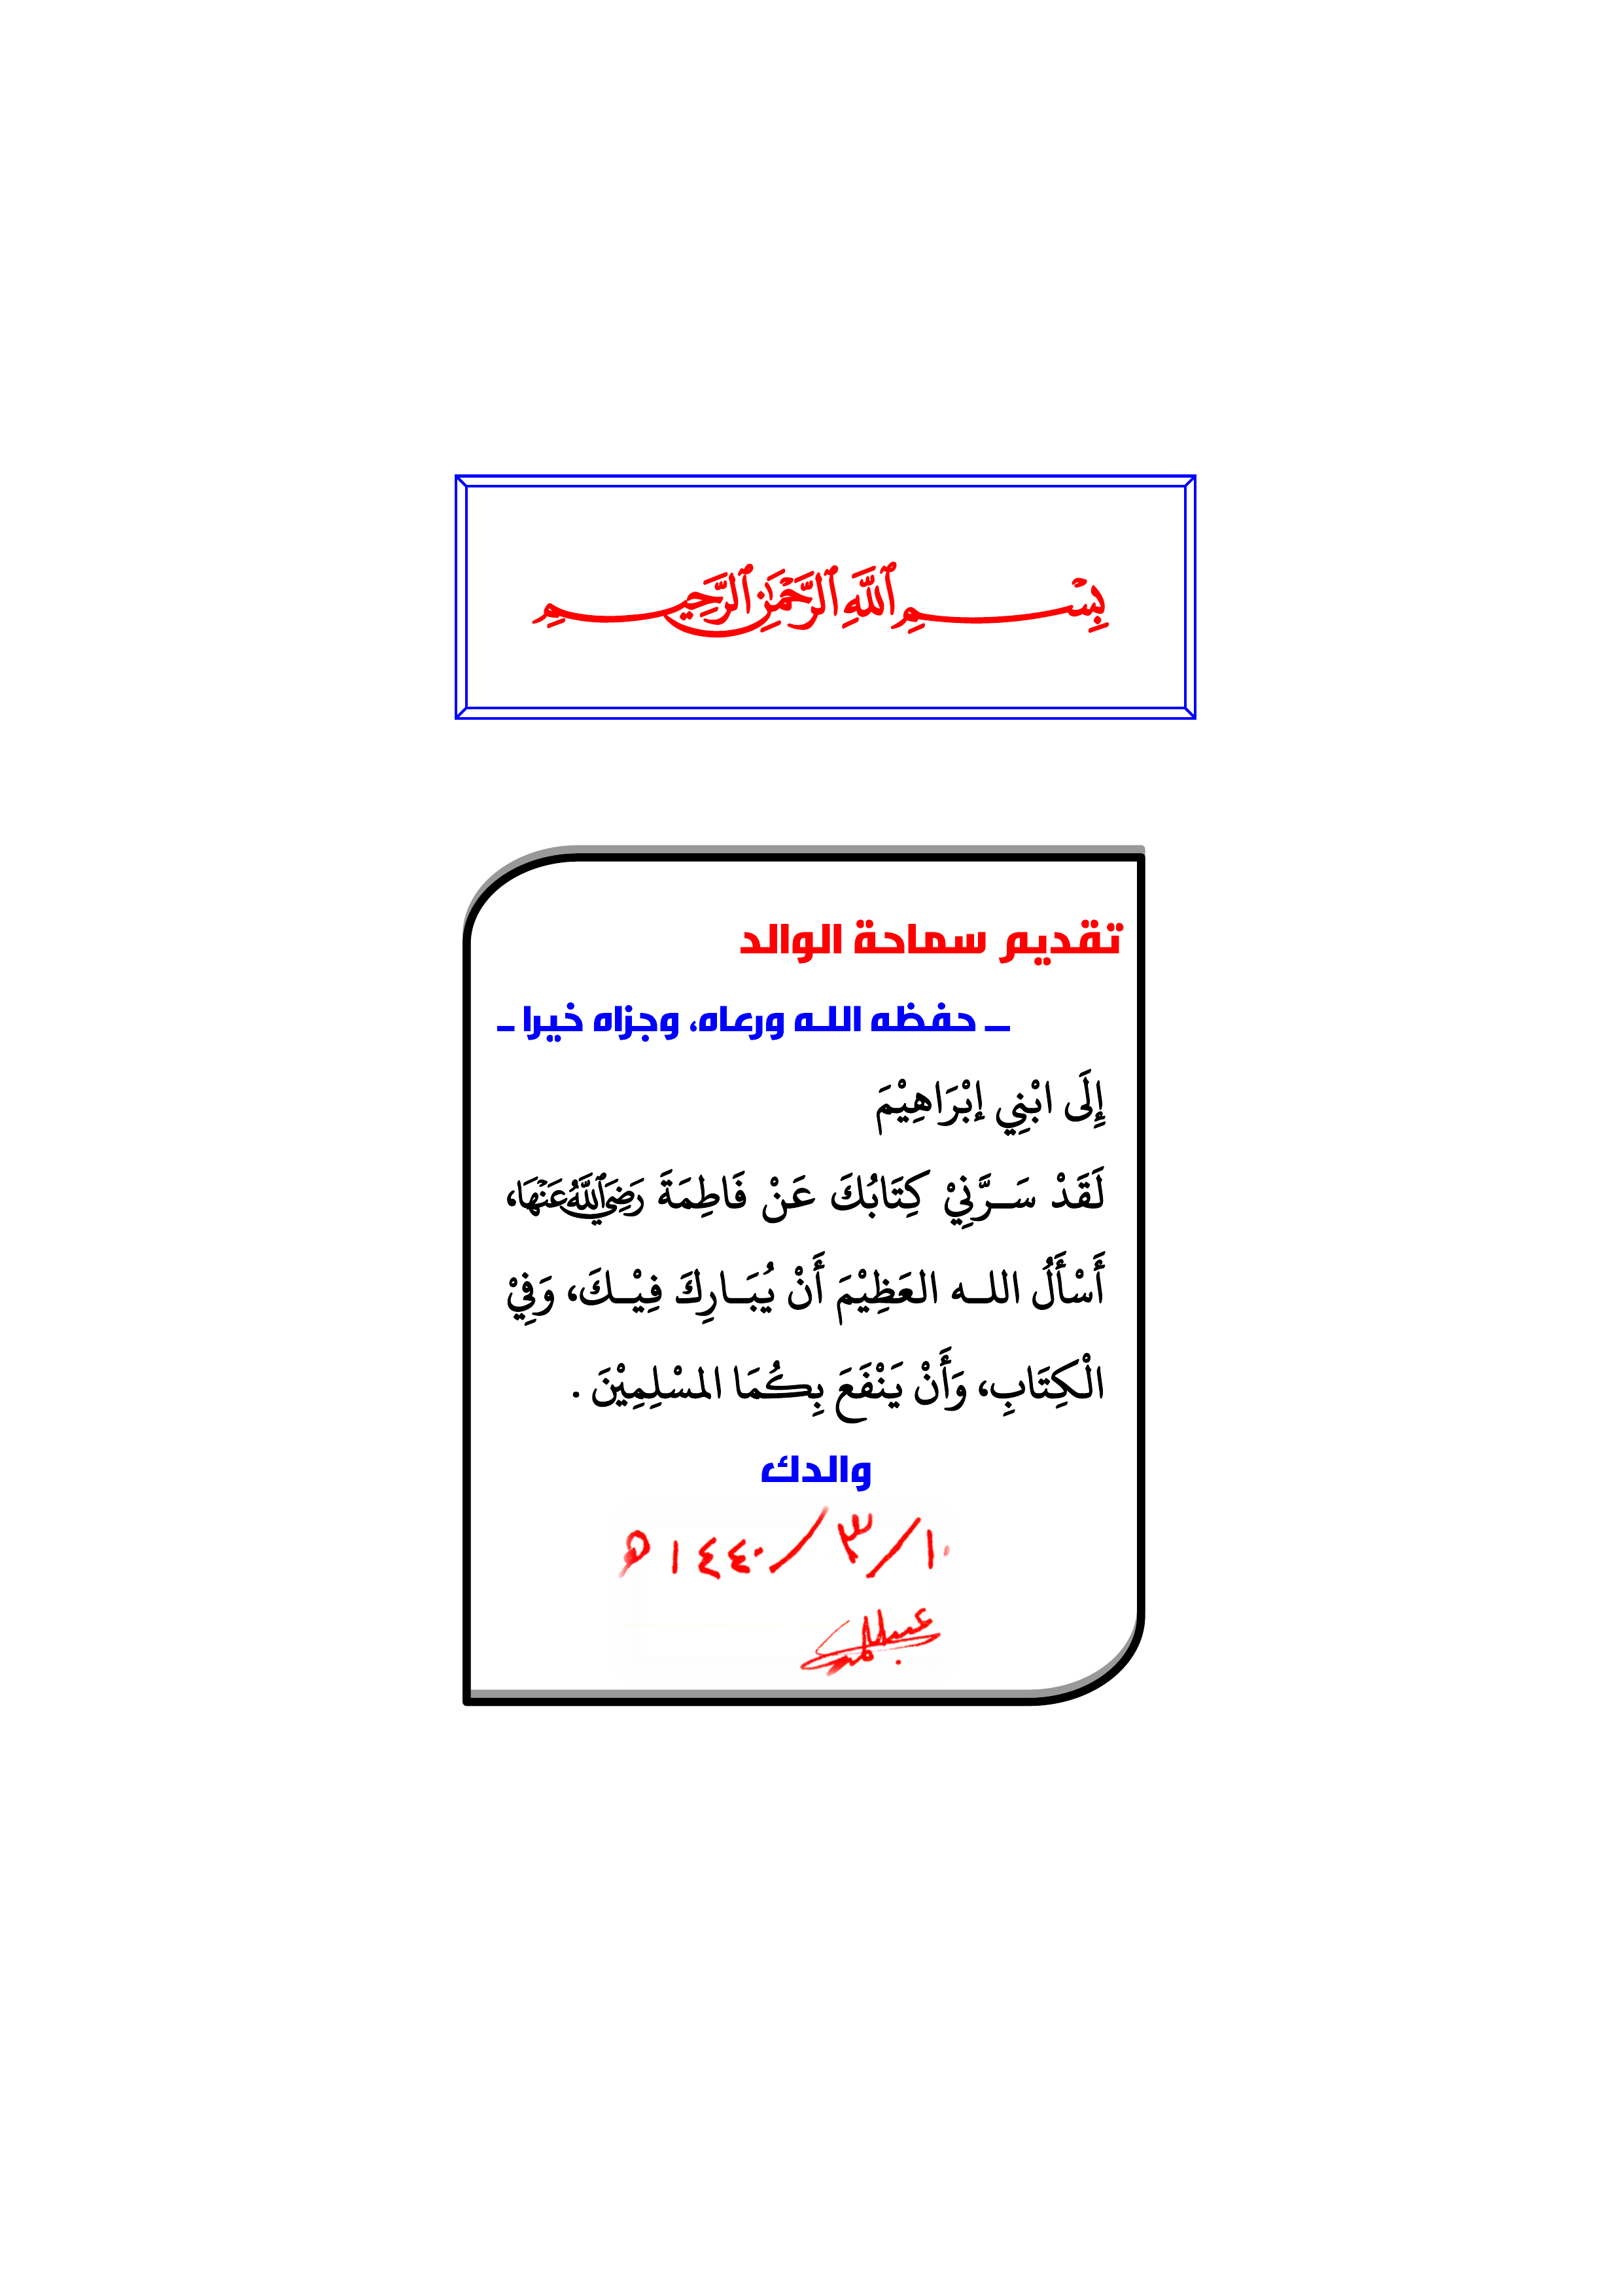 بِسْمِ ٱللَّهِ ٱلرَّحْمَٰنِ ٱلرَّحِيمِ
تقديم سماحة الوالد
ــ حفظه اللـه ورعاه، وجزاه خيرا ــ
إِلَى ابْنِي إبْرَاهِيْمَ
لَقَدْ سَــرَّنِيْ كِتَابُكَ عَنْ فَاطِمَةَ رَضِيَ ٱللَّهُ عَنْهَا،
أَسْأَلُ اللــه العَظِيْمَ أَنْ يُبَــارِكَ فِيْــكَ، وَفِيْ
الْكِتَابِ، وَأَنْ يَنْفَعَ بِكُمَا المسْلِمِيْنَ .
والدك
١٠/٣/١٤٤٠ه